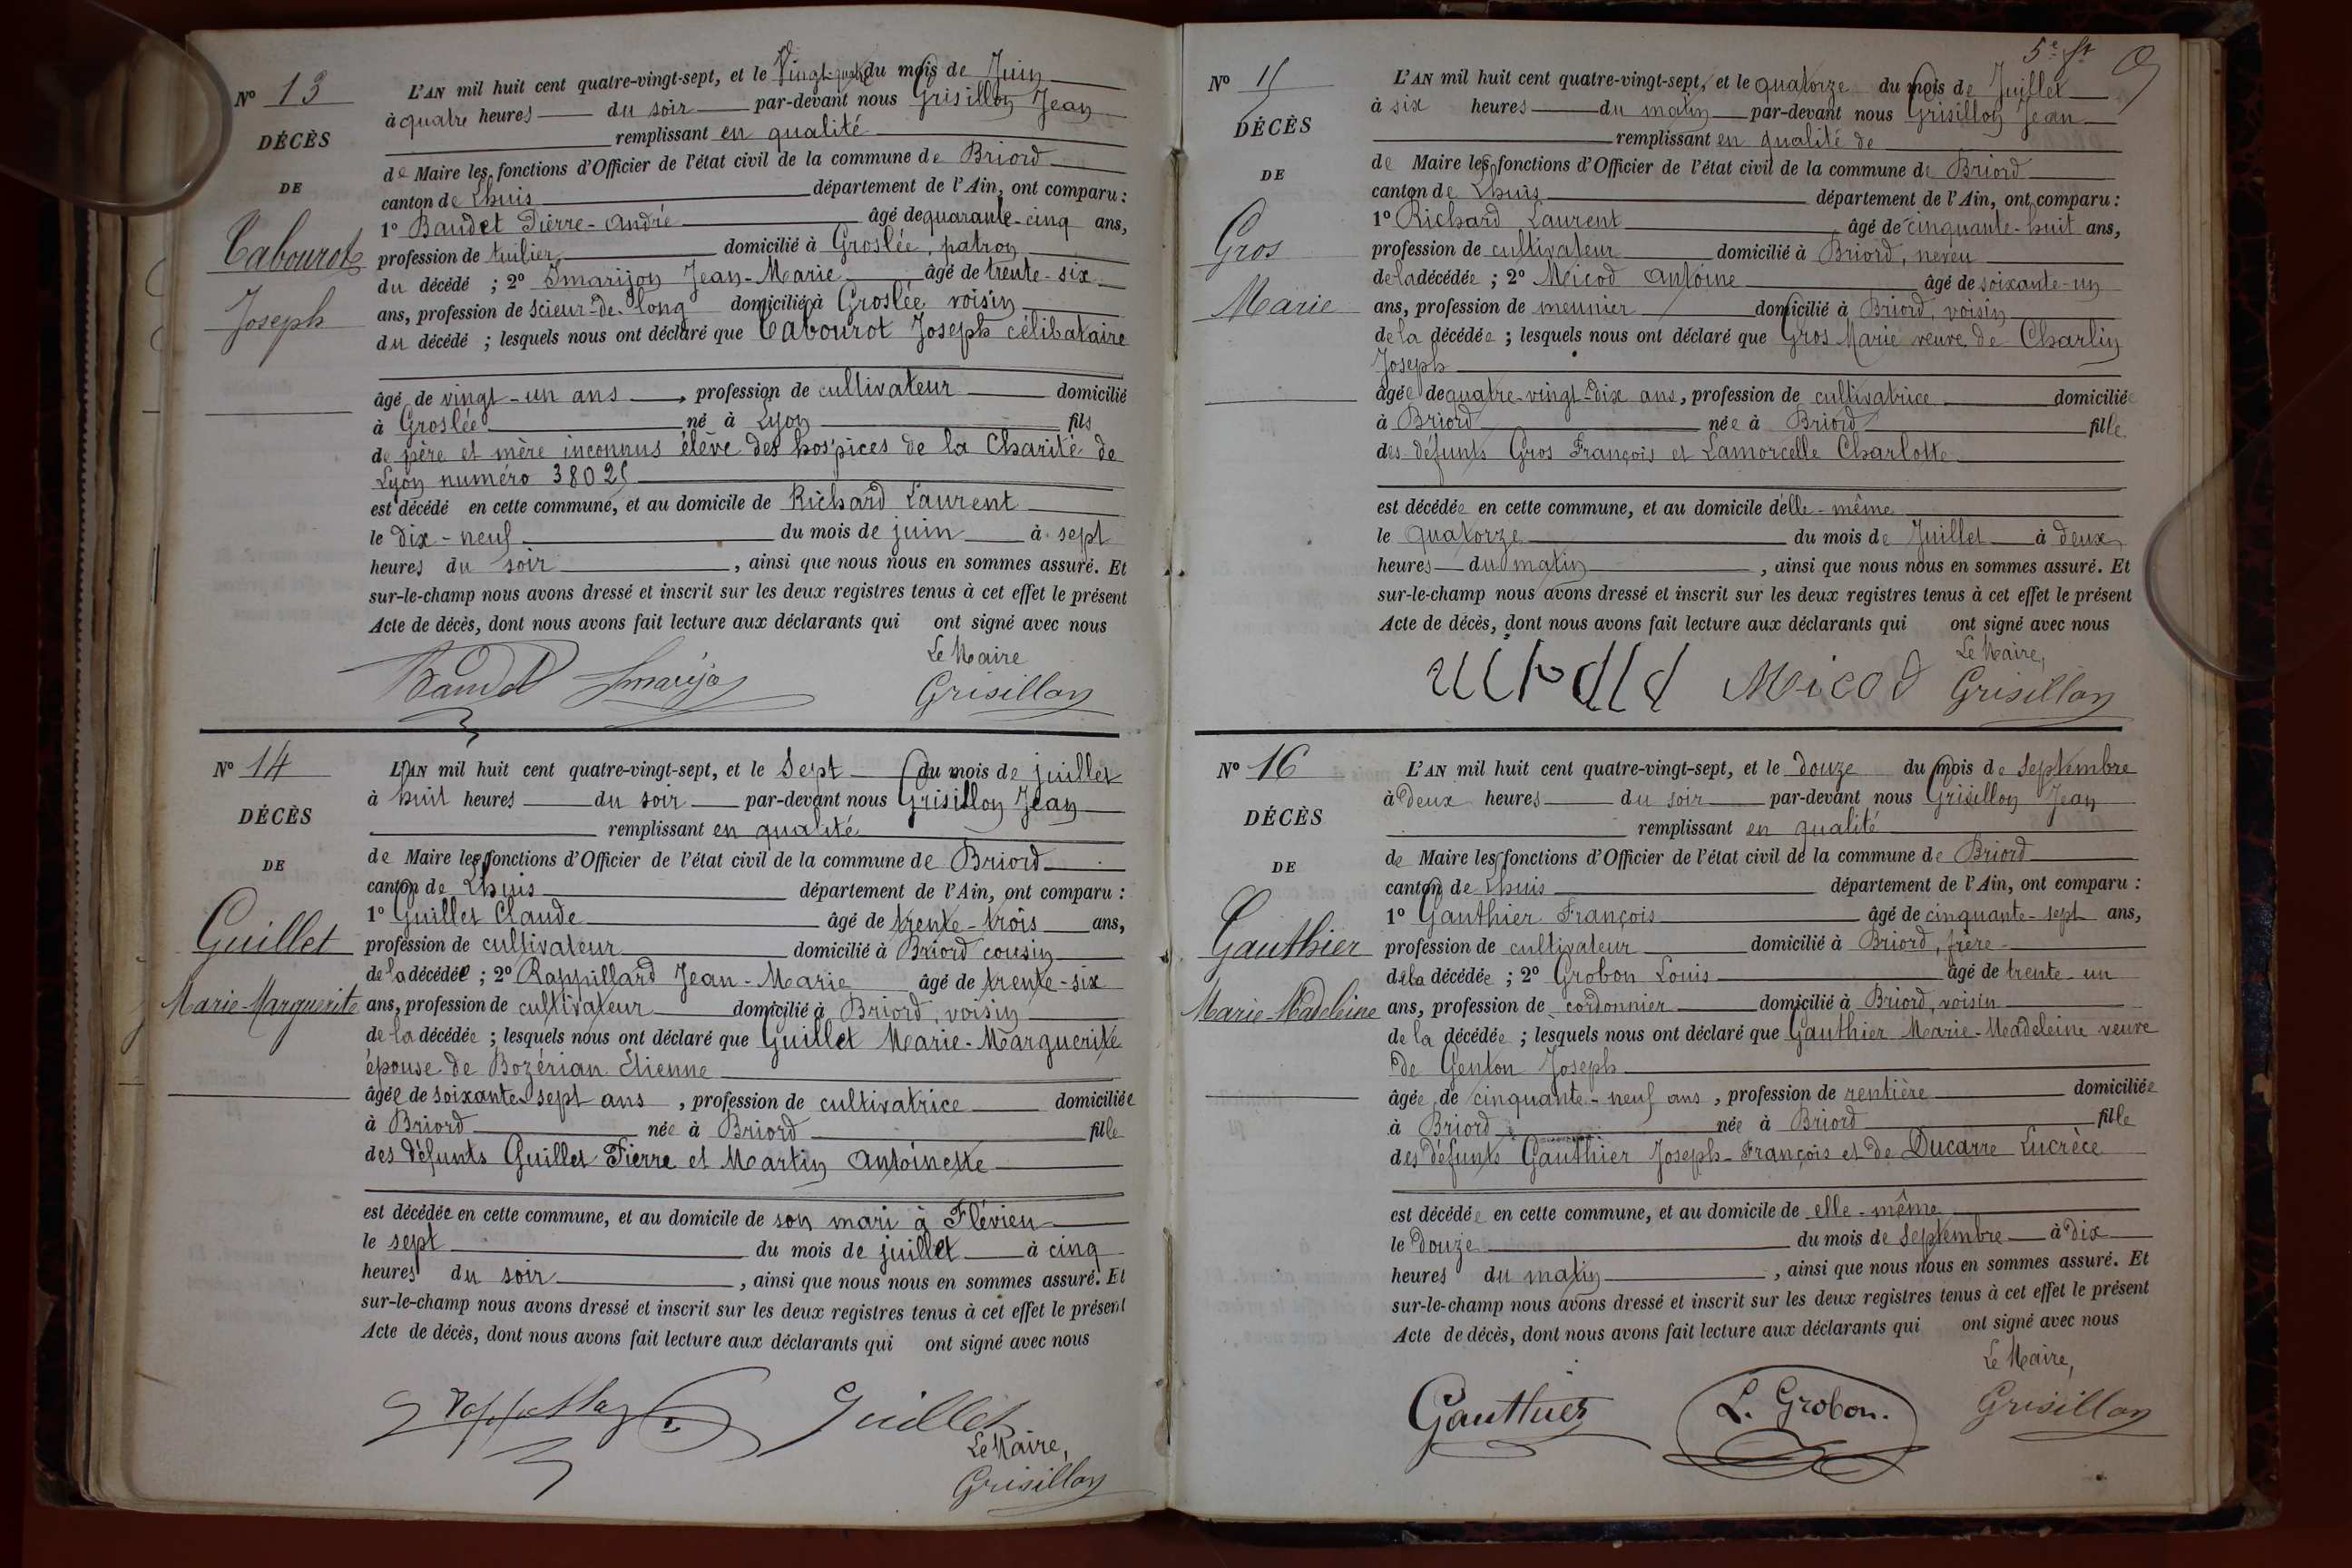 Nº 13
DÉCÈS
DE
Cabourot
Joseph
L'AN mil huit cent quatre-vingt-sept, et le Vingt-quatre du mois de Juin
à quatre heures du soir par-devant nous Grisillon Jean
remplissant en qualité
de Maire les fonctions d'Officier de l'état civil de la commune de Briord
canton de Lhuis département de l'Ain, ont comparu :
1º Baudet Pierre-André âgé de quarante-cinq ans,
profession de tuilier domicilié à Groslée, patron
du décédé ; 2º Smarijon Jean-Marie âgé de trente-six
ans, profession de scieur-de-long domicilié à Groslée voisin
du décédé ; lesquels nous ont déclaré que Cabourot Joseph célibataire
âgé de vingt-un ans, profession de cultivateur domicilié
à Groslée né à Lyon fils
de père et mère inconnus élève des hospices de la Charité de
Lyon numéro 38025
est décédé en cette commune, et au domicile de Richard Laurent
le dix-neuf du mois de juin à sept
heures du soir, ainsi que nous nous en sommes assuré. Et
sur-le-champ nous avons dressé et inscrit sur les deux registres tenus à cet effet le présent
Acte de décès, dont nous avons fait lecture aux déclarants qui ont signé avec nous
Le Maire
Baudet Smarijo Grisillon
Nº 14
DÉCÈS
DE
Guillet
Marie-Marguerite
L'AN mil huit cent quatre-vingt-sept, et le Sept du mois de juillet
à huit heures du soir par-devant nous Grisillon Jean
remplissant en qualité
de Maire les fonctions d'Officier de l'état civil de la commune de Briord
canton de Lhuis département de l'Ain, ont comparu :
1º Guillet Claude âgé de trente-trois ans,
profession de cultivateur domicilié à Briord cousin
de la décédée ; 2º Rappillard Jean-Marie âgé de trente-six
ans, profession de cultivateur domicilié à Briord, voisin
de la décédée ; lesquels nous ont déclaré que Guillet Marie-Marguerite
épouse de Bozérian Etienne
âgée de soixante-sept ans, profession de cultivatrice domiciliée
à Briord née à Briord fille
des défunts Guillet Pierre et Martin Antoinette
est décédée en cette commune, et au domicile de son mari à Flévieu
le sept du mois de juillet à cinq
heures du soir, ainsi que nous nous en sommes assuré. Et
sur-le-champ nous avons dressé et inscrit sur les deux registres tenus à cet effet le présent
Acte de décès, dont nous avons fait lecture aux déclarants qui ont signé avec nous
Guillet
Le Maire,
Grisillon
5e ft
Nº 15
DÉCÈS
DE
Gros
Marie
L'AN mil huit cent quatre-vingt-sept, et le quatorze du mois de Juillet
à six heures du matin par-devant nous Grisillon Jean
remplissant en qualité de
de Maire les fonctions d'Officier de l'état civil de la commune de Briord
canton de Lhuis département de l'Ain, ont comparu :
1º Richard Laurent âgé de cinquante-huit ans,
profession de cultivateur domicilié à Briord, neveu
de la décédée ; 2º Micod Antoine âgé de soixante-un
ans, profession de meunier domicilié à Briord, voisin
de la décédée ; lesquels nous ont déclaré que Gros Marie veuve de Charlin
Joseph
âgée de quatre-vingt-dix ans, profession de cultivatrice domiciliée
à Briord née à Briord fille
des défunts Gros François et Lamorcelle Charlotte
est décédée en cette commune, et au domicile d'elle-même
le quatorze du mois de Juillet à deux
heures du matin, ainsi que nous nous en sommes assuré. Et
sur-le-champ nous avons dressé et inscrit sur les deux registres tenus à cet effet le présent
Acte de décès, dont nous avons fait lecture aux déclarants qui ont signé avec nous
Le Maire,
Micod Grisillon
Nº 16
DÉCÈS
DE
Gauthier
Marie-Madeleine
L'AN mil huit cent quatre-vingt-sept, et le douze du mois de Septembre
à Deux heures du soir par-devant nous Grisillon Jean
remplissant en qualité
de Maire les fonctions d'Officier de l'état civil de la commune de Briord
canton de Lhuis département de l'Ain, ont comparu :
1º Gauthier François âgé de cinquante-sept ans,
profession de cultivateur domicilié à Briord, frère
de la décédée ; 2º Grobon Louis âgé de trente-un
ans, profession de cordonnier domicilié à Briord, voisin
de la décédée ; lesquels nous ont déclaré que Gauthier Marie-Madeleine veuve
de Genton Joseph
âgée de cinquante-neuf ans, profession de rentière domiciliée
à Briord née à Briord fille
des défunts Gauthier Joseph-François et de Ducarre Lucrèce
est décédée en cette commune, et au domicile de elle-même
le douze du mois de Septembre à Dix
heures du matin, ainsi que nous nous en sommes assuré. Et
sur-le-champ nous avons dressé et inscrit sur les deux registres tenus à cet effet le présent
Acte de décès, dont nous avons fait lecture aux déclarants qui ont signé avec nous
Le Maire,
Gauthier L. Grobon. Grisillon